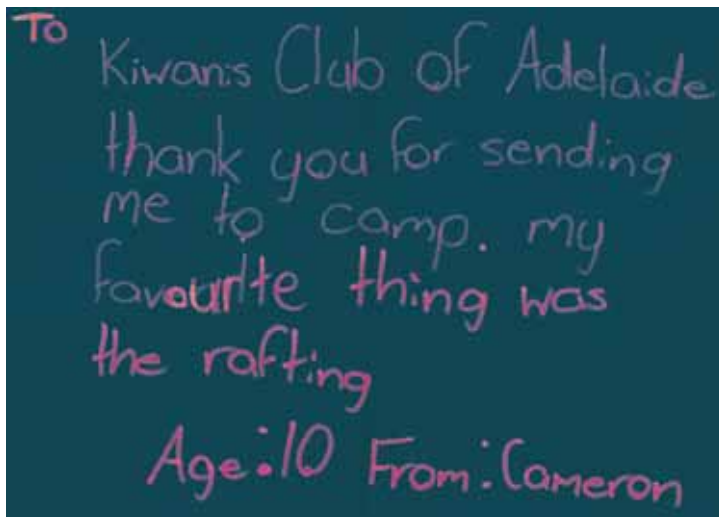 To
Kiwanis Club of Adelaide
thank you for sending
me to camp. my
favourite thing was
the rafting
Age:10 From:Cameron